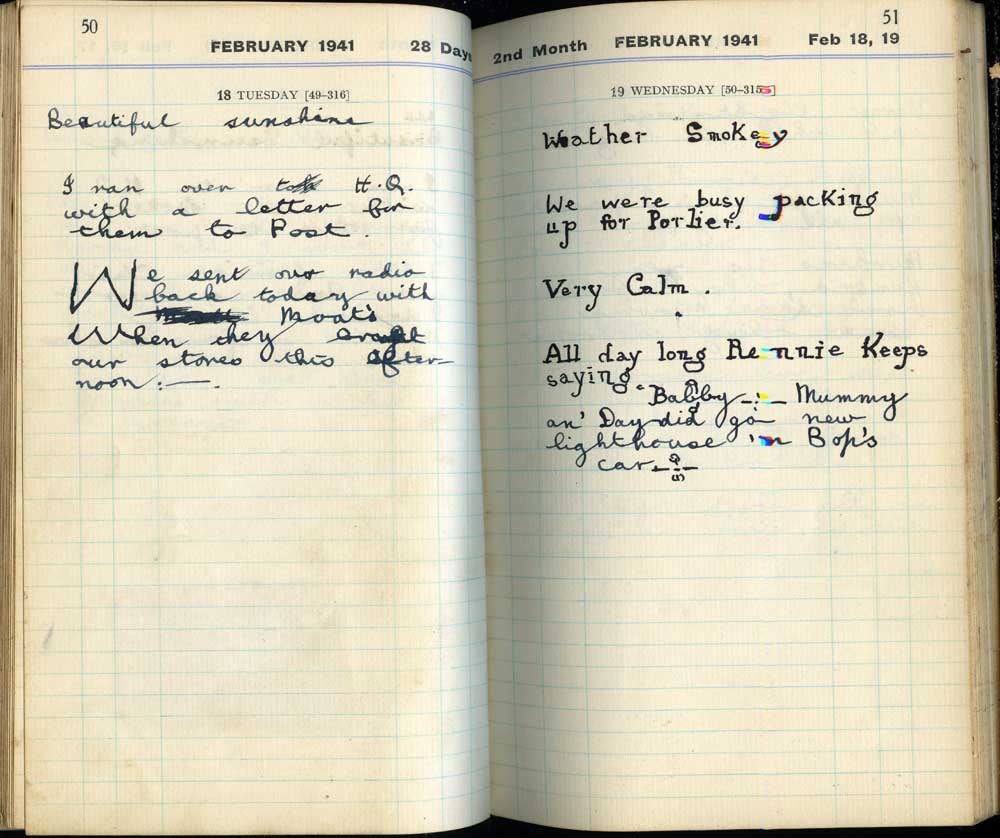 50
FEBRUARY 1941 28 Days
18 TUESDAY [49–316]
Beautiful sunshine
I ran over to H.Q.
with a letter for
them to Post.
We sent our radio
back today with
Moat's
When they brought
our stores this after-
noon:—.
51
2nd Month FEBRUARY 1941 Feb 18, 19
19 WEDNESDAY [50–315]
Weather Smokey
We were busy packing
up for Porlier.
Very Calm.
All day long Rennie Keeps
saying.
Babby —:— Mummy
an' Day did go new
lighthouse 'in Bop's
car